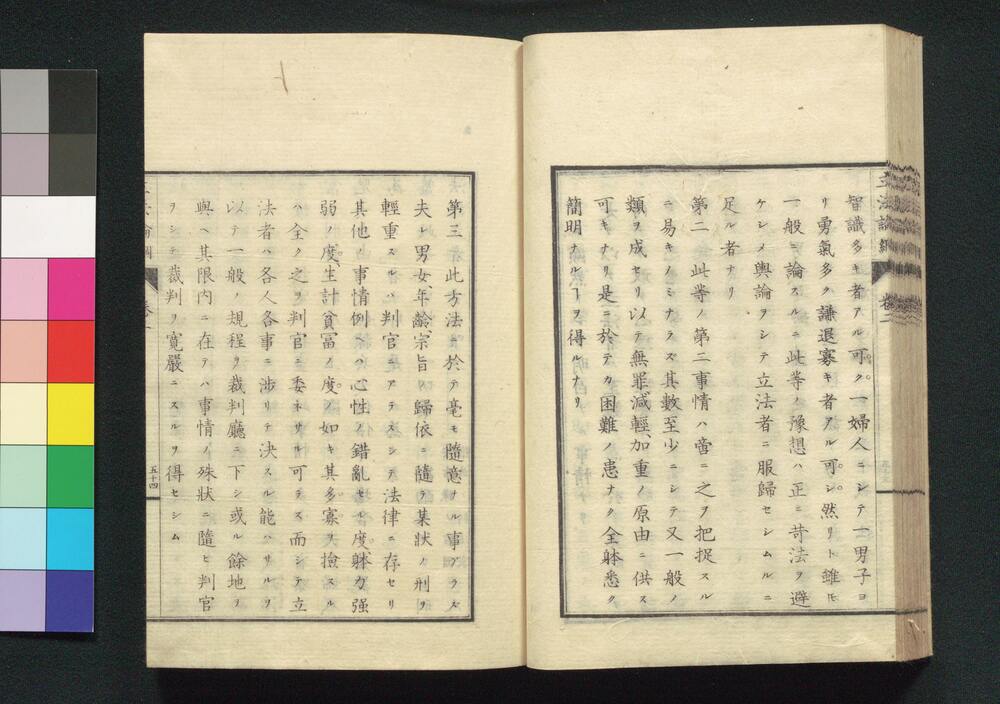 智識多キ者アル可ク一婦人ニシテ一男子ヨ
リ勇氣多ク謙退寡キ者アル可シ然リト雖𪜈
一般ニ論スルニ此等ノ豫想ハ正ニ苛法ヲ避
ケシメ輿論ヲシテ立法者ニ服歸セシムルニ
足ル者ナリ
第二 此等ノ第二事情ハ啻ニ之ヲ把捉スル
ニ易キノミナラズ其數至少ニシテ又一般ノ
類ヲ成セリ以テ無罪減輕、加重ノ原由ニ供ス
可キナリ是ニ於テカ困難ノ患ナク全躰悉ク
簡明ナルヿヲ得ルナリ
立法論綱
卷二
第三 此方法ニ於テ毫モ隨意ナル事アラズ
夫レ男女、年齡、宗旨ノ歸依ニ隨テ某狀ノ刑ヲ
輕重スルハ判官ニアラズシテ法律ニ存セリ
其他ノ事情例ヘハ心性ノ錯亂セル度、躰力强
弱ノ度、生計貧冨ノ度ノ如キ其多寡ヲ撿スル
ハ全ク之ヲ判官ニ委ネサル可ラス而シテ立
法者ハ各人各事ニ渉リテ決スル能ハサルヲ
以テ一般ノ規程ヲ裁判廳ニ下シ或ル餘地ヲ
與ヘ其限内ニ在テハ事情ノ殊狀ニ隨ヒ判官
ヲシテ裁判ヲ寛嚴ニスルヲ得セシム
五十四